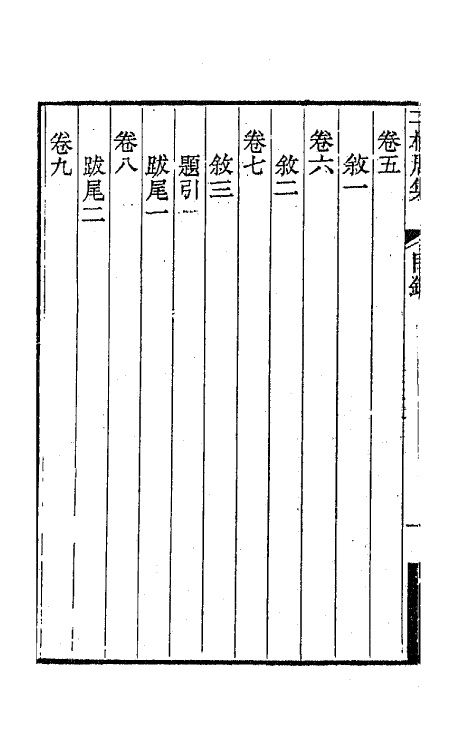 卷五
敘一
卷六
敘二
卷七
敘三
題引一
跋尾一
卷八
跋尾二
卷九